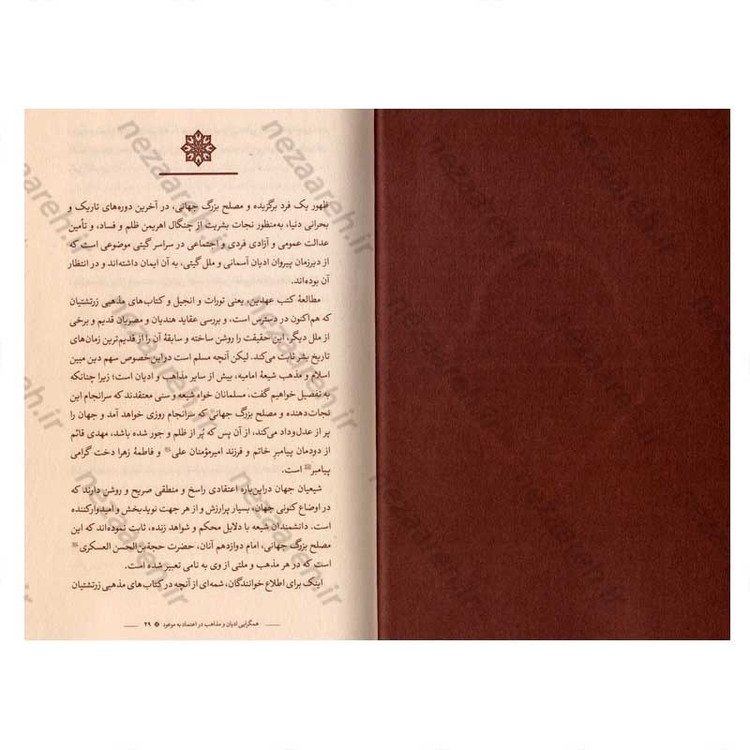 ظهور یک فرد برگزیده و مصلح بزرگ جهانی، در آخرین دوره‌های تاریک و
بحرانی دنیا، به‌منظور نجات بشریت از چنگال اهریمن ظلم و فساد، و تأمین
عدالت عمومی و آزادی فردی و اجتماعی در سراسر گیتی موضوعی است که
از دیرزمان پیروان ادیان آسمانی و ملل گیتی، به آن ایمان داشته‌اند و در انتظار
آن بوده‌اند.
مطالعهٔ کتب عهدین، یعنی تورات و انجیل و کتاب‌های مذهبی زرتشتیان
که هم‌اکنون در دسترس است، و بررسی عقاید هندیان و مصریان قدیم و برخی
از ملل دیگر، این حقیقت را روشن ساخته و سابقهٔ آن را از قدیم‌ترین زمان‌های
تاریخ بشر ثابت می‌کند. لیکن آنچه مسلم است دراین‌خصوص سهم دین مبین
اسلام و مذهب شیعهٔ امامیه، بیش از سایر مذاهب و ادیان است؛ زیرا چنانکه
به تفصیل خواهیم گفت، مسلمانان خواه شیعه و سنی معتقدند که سرانجام این
نجات‌دهنده و مصلح بزرگ جهانی که سرانجام روزی خواهد آمد و جهان را
پر از عدل‌وداد می‌کند، از آن پس که پُر از ظلم و جور شده باشد، مهدی قائم
از دودمان پیامبر خاتم و فرزند امیرمؤمنان علی و فاطمهٔ زهرا دخت گرامی
پیامبر است.
شیعیان جهان دراین‌باره اعتقادی راسخ و منطقی صریح و روشن دارند که
در اوضاع کنونی جهان، بسیار پرارزش و از هر جهت نویدبخش و امیدوارکننده
است. دانشمندان شیعه با دلایل محکم و شواهد زنده، ثابت نموده‌اند که این
مصلح بزرگ جهانی، امام دوازدهم آنان، حضرت حجةبن‌الحسن العسکری
است که در هر مذهب و ملتی از وی به نامی تعبیر شده است.
اینک برای اطلاع خوانندگان، شمه‌ای از آنچه در کتاب‌های مذهبی زرتشتیان
همگرایی ادیان و مذاهب در اعتماد به موعود ۲۹
nezaareh.ir